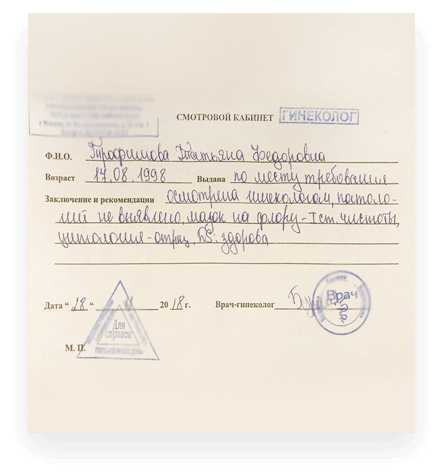 СМОТРОВОЙ КАБИНЕТ ГИНЕКОЛОГ
Ф.И.О. Трофимова Татьяна Федоровна
Возраст 17.08.1998 Выдана по месту требования
Заключение и рекомендации осмотрена гинекологом, патоло-
гий не выявлено, мазок на флору - I ст. чистоты,
цитология - отриц, DS: здорова
Дата “ 28 ” 11 20 18 г. Врач-гинеколог
Врач
Для
справок
М. П.